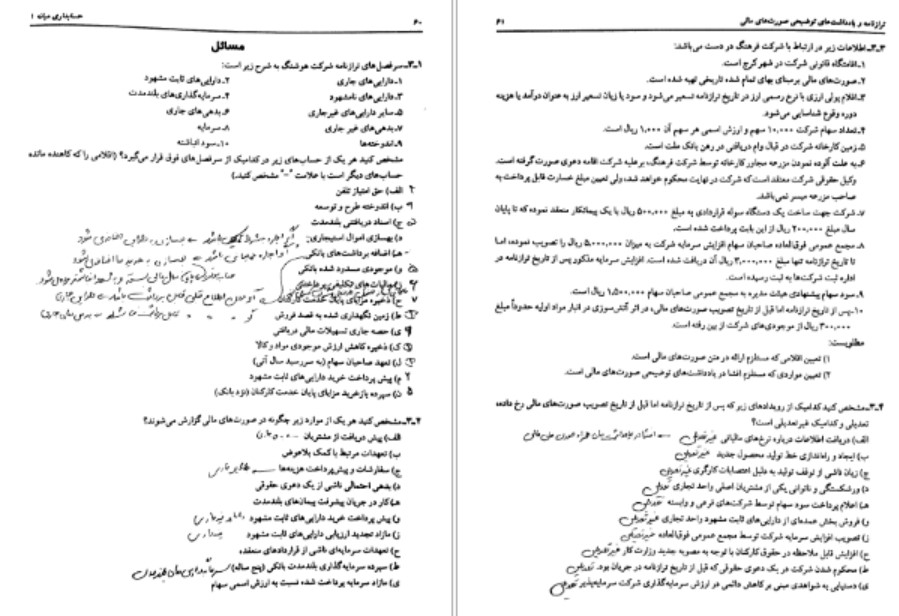 حسابداری میانه ۱
۶۰
مسائل
۱ـ۳ـ سرفصل‌های ترازنامه شرکت هوشنگ به شرح زیر است:
۱ـ دارایی‌های جاری
۲ـ دارایی‌های ثابت مشهود
۳ـ دارایی‌های نامشهود
۴ـ سرمایه‌گذاری‌های بلندمدت
۵ـ سایر دارایی‌های غیرجاری
۶ـ بدهی‌های جاری
۷ـ بدهی‌های غیر جاری
۸ـ سرمایه
۹ـ اندوخته‌ها
۱۰ـ سود انباشته
مشخص کنید هر یک از حساب‌های زیر در کدامیک از سرفصل‌های فوق قرار می‌گیرد؟ (اقلامی را که کاهنده مانده
حساب‌های دیگر است با علامت "-" مشخص کنید.)
الف) حق امتیاز تلفن
ب) اندوخته طرح و توسعه
ج) اسناد دریافتنی بلندمدت
د) بهسازی اموال استیجاری
هـ) اضافه برداشت‌های بانکی
و) موجودی مسدود شده بانکی
ز) مالیات‌های تکلیفی پرداختنی
ح) ذخیره مزایای پایان خدمت کارکنان
ط) زمین نگهداری شده به قصد فروش
ی) حصه جاری تسهیلات مالی دریافتی
ک) ذخیره کاهش ارزش موجودی مواد و کالا
ل) تعهد صاحبان سهام (به سررسید سال آتی)
م) پیش پرداخت خرید دارایی‌های ثابت مشهود
ن) سپرده بازخرید مزایای پایان خدمت کارکنان (نزد بانک)
۲ـ۳ـ مشخص کنید هر یک از موارد زیر چگونه در صورت‌های مالی گزارش می‌شوند؟
الف) پیش دریافت از مشتریان
ب) تعهدات مرتبط با کمک بلاعوض
ج) سفارشات و پیش‌پرداخت هزینه‌ها
د) بدهی احتمالی ناشی از یک دعوی حقوقی
هـ) کار در جریان پیشرفت پیمان‌های بلندمدت
و) پیش پرداخت خرید دارایی‌های ثابت مشهود
ز) مازاد تجدید ارزیابی دارایی‌های ثابت مشهود
ح) تعهدات سرمایه‌ای ناشی از قراردادهای منعقده
ط) سپرده سرمایه‌گذاری بلندمدت بانکی (پنج ساله)
ی) مازاد سرمایه پرداخت شده نسبت به ارزش اسمی سهام
ترازنامه و یادداشت‌های توضیحی صورت‌های مالی
۶۱
۳ـ۳ـ اطلاعات زیر در ارتباط با شرکت فرهنگ در دست می‌باشد:
۱ـ اقامتگاه قانونی شرکت در شهر کرج است.
۲ـ صورت‌های مالی بر مبنای بهای تمام شده تاریخی تهیه شده است.
۳ـ اقلام پولی ارزی با نرخ رسمی ارز در تاریخ ترازنامه تسعیر می‌شود و سود یا زیان تسعیر ارز به عنوان درآمد یا هزینه
دوره وقوع شناسایی می‌شود.
۴ـ تعداد سهام شرکت ۱۰,۰۰۰ سهم و ارزش اسمی هر سهم آن ۱,۰۰۰ ریال است.
۵ـ زمین کارخانه شرکت در قبال وام دریافتی در رهن بانک ملت است.
۶ـ به علت آلوده نمودن مزرعه مجاور کارخانه توسط شرکت فرهنگ، بر علیه شرکت اقامه دعوی صورت گرفته است.
وکیل حقوقی شرکت معتقد است که شرکت در نهایت محکوم خواهد شد، ولی تعیین مبلغ خسارت قابل پرداخت به
صاحب مزرعه میسر نمی‌باشد.
۷ـ شرکت جهت ساخت یک دستگاه سوله قراردادی به مبلغ ۵۰۰,۰۰۰ ریال با یک پیمانکار منعقد نموده که تا پایان
سال مبلغ ۲۰۰,۰۰۰ ریال از این بابت پرداخت شده است.
۸ـ مجمع عمومی فوق‌العاده صاحبان سهام افزایش سرمایه شرکت به میزان ۵,۰۰۰,۰۰۰ ریال را تصویب نموده، اما
تا تاریخ ترازنامه تنها مبلغ ۳,۰۰۰,۰۰۰ ریال آن دریافت شده است. افزایش سرمایه مذکور پس از تاریخ ترازنامه در
اداره ثبت شرکت‌ها به ثبت رسیده است.
۹ـ سود سهام پیشنهادی هیئت مدیره به مجمع عمومی صاحبان سهام ۱,۵۰۰,۰۰۰ ریال است.
۱۰ـ پس از تاریخ ترازنامه اما قبل از تاریخ تصویب صورت‌های مالی، در اثر آتش‌سوزی در انبار مواد اولیه حدوداً مبلغ
۳۰۰,۰۰۰ ریال از موجودی‌های شرکت از بین رفته است.
مطلوبست:
۱) تعیین اقلامی که مستلزم ارائه در متن صورت‌های مالی است.
۲) تعیین مواردی که مستلزم افشا در یادداشت‌های توضیحی صورت‌های مالی است.
۴ـ۳ـ مشخص کنید کدامیک از رویدادهای زیر که پس از تاریخ ترازنامه اما قبل از تاریخ تصویب صورت‌های مالی رخ داده،
تعدیلی و کدامیک غیرتعدیلی است؟
الف) دریافت اطلاعات درباره نرخ‌های مالیاتی غیرتعدیلی
ب) ایجاد و راه‌اندازی خط تولید محصول جدید غیرتعدیلی
ج) زیان ناشی از توقف تولید به دلیل اعتصابات کارگری غیرتعدیلی
د) ورشکستگی و ناتوانی یکی از مشتریان اصلی واحد تجاری تعدیلی
هـ) اعلام پرداخت سود سهام توسط شرکت‌های فرعی و وابسته
و) فروش بخش عمده‌ای از دارایی‌های ثابت مشهود واحد تجاری غیرتعدیلی
ز) تصویب افزایش سرمایه شرکت توسط مجمع عمومی فوق‌العاده غیرتعدیلی
ح) افزایش قابل ملاحظه در حقوق کارکنان با توجه به مصوبه جدید وزارت کار غیرتعدیلی
ط) محکوم شدن شرکت در یک دعوی حقوقی که قبل از تاریخ ترازنامه در جریان بود. تعدیلی
ی) دستیابی به شواهدی مبنی بر کاهش دائمی در ارزش سرمایه‌گذاری شرکت سرمایه‌پذیر تعدیلی